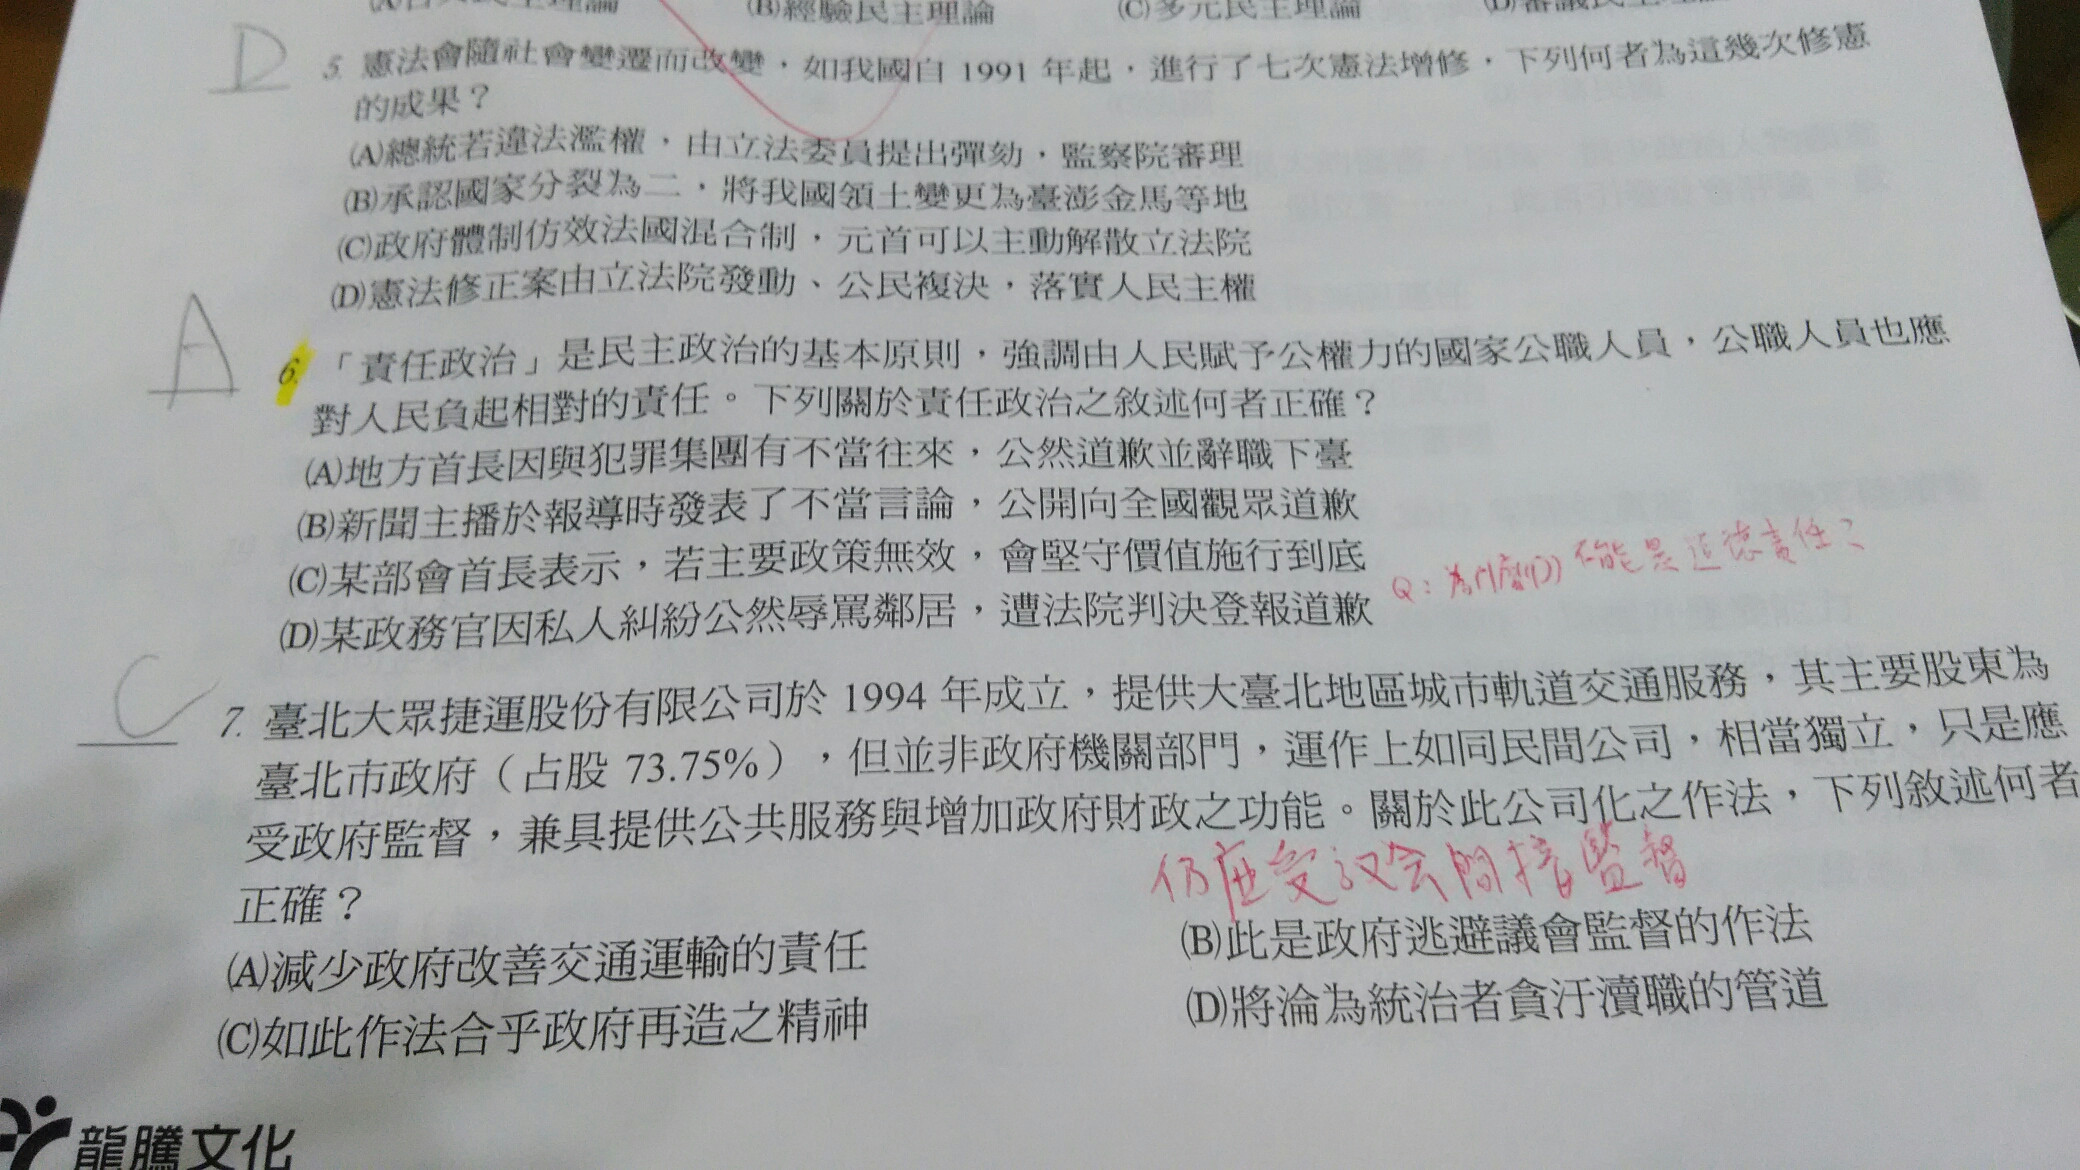 (B)經驗民主理論 (C)多元民主理論
D 5. 憲法會隨社會變遷而改變，如我國自 1991 年起，進行了七次憲法增修，下列何者為這幾次修憲
的成果？
(A)總統若違法濫權，由立法委員提出彈劾，監察院審理
(B)承認國家分裂為二，將我國領土變更為臺澎金馬等地
(C)政府體制仿效法國混合制，元首可以主動解散立法院
(D)憲法修正案由立法院發動、公民複決，落實人民主權
A 6. 「責任政治」是民主政治的基本原則，強調由人民賦予公權力的國家公職人員，公職人員也應
對人民負起相對的責任。下列關於責任政治之敘述何者正確？
(A)地方首長因與犯罪集團有不當往來，公然道歉並辭職下臺
(B)新聞主播於報導時發表了不當言論，公開向全國觀眾道歉
(C)某部會首長表示，若主要政策無效，會堅守價值施行到底
Q：為什麼(D)不能是道德責任？
(D)某政務官因私人糾紛公然辱罵鄰居，遭法院判決登報道歉
C 7. 臺北大眾捷運股份有限公司於 1994 年成立，提供大臺北地區城市軌道交通服務，其主要股東為
臺北市政府（占股 73.75%），但並非政府機關部門，運作上如同民間公司，相當獨立，只是應
受政府監督，兼具提供公共服務與增加政府財政之功能。關於此公司化之作法，下列敘述何者
正確？
仍應受议会間接監督
(A)減少政府改善交通運輸的責任 (B)此是政府逃避議會監督的作法
(C)如此作法合乎政府再造之精神 (D)將淪為統治者貪汙瀆職的管道
龍騰文化